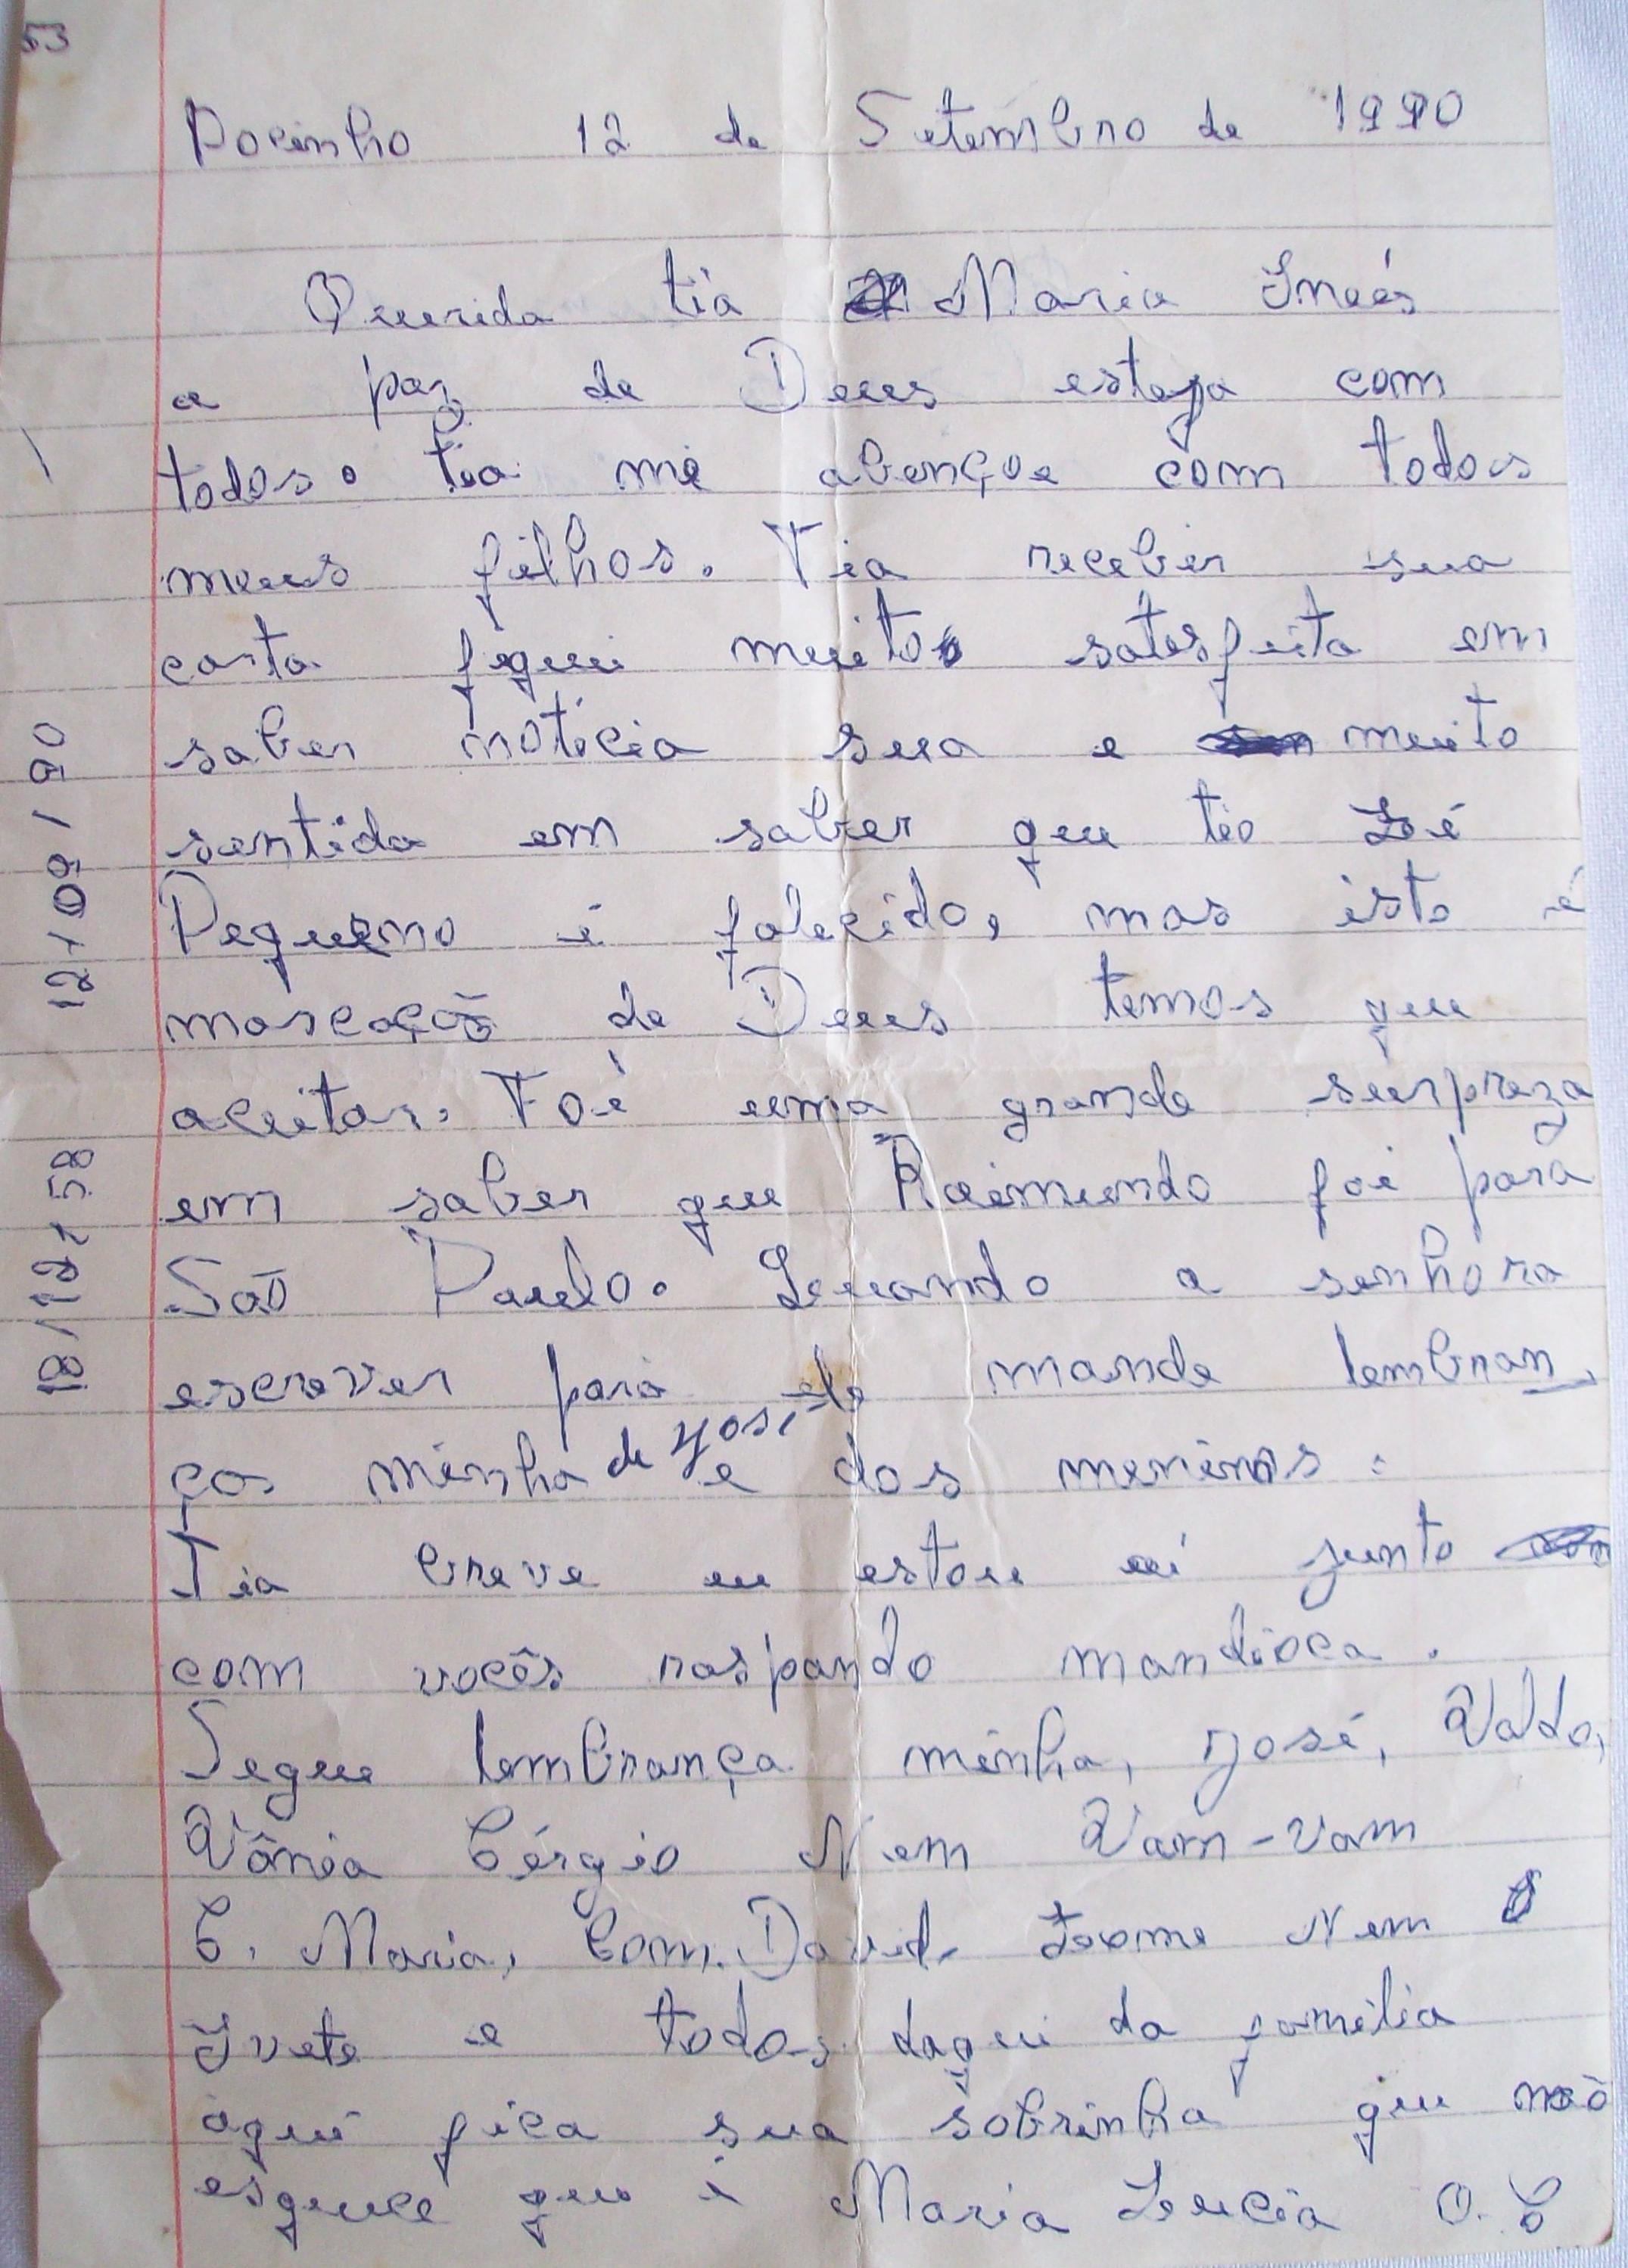 53
Pocinho 12 de Setembro de 1990
Querida tia Maria Ineês
a paz de Deus esteja com
todos. tia me abençoe com todos
meus filhos. Tia receber sua
carta fiquei muito satisfeita em
saber notícia sua e muito
sentida em saber que tio Zé
Pequeno é falecido, mas isto é
marcação de Deus temos que
aceitar. Foi uma grande surpreza
em saber que Raimundo foi para
São Paulo. Quando a senhora
escrever para ele mande lembran
ças minha de José e dos meninos.
Tia breve eu estou aí junto
com vocês raspando mandioca.
Segue lembrança minha, José, Valdo,
Vânia Cérgio Nem Vam-vam
C. Maria, Com. David. Nem
Ivete e todos daqui da família
aqui fica sua sobrinha que não
esquece que é Maria Lucia O. C
12/09/90
18/12/58